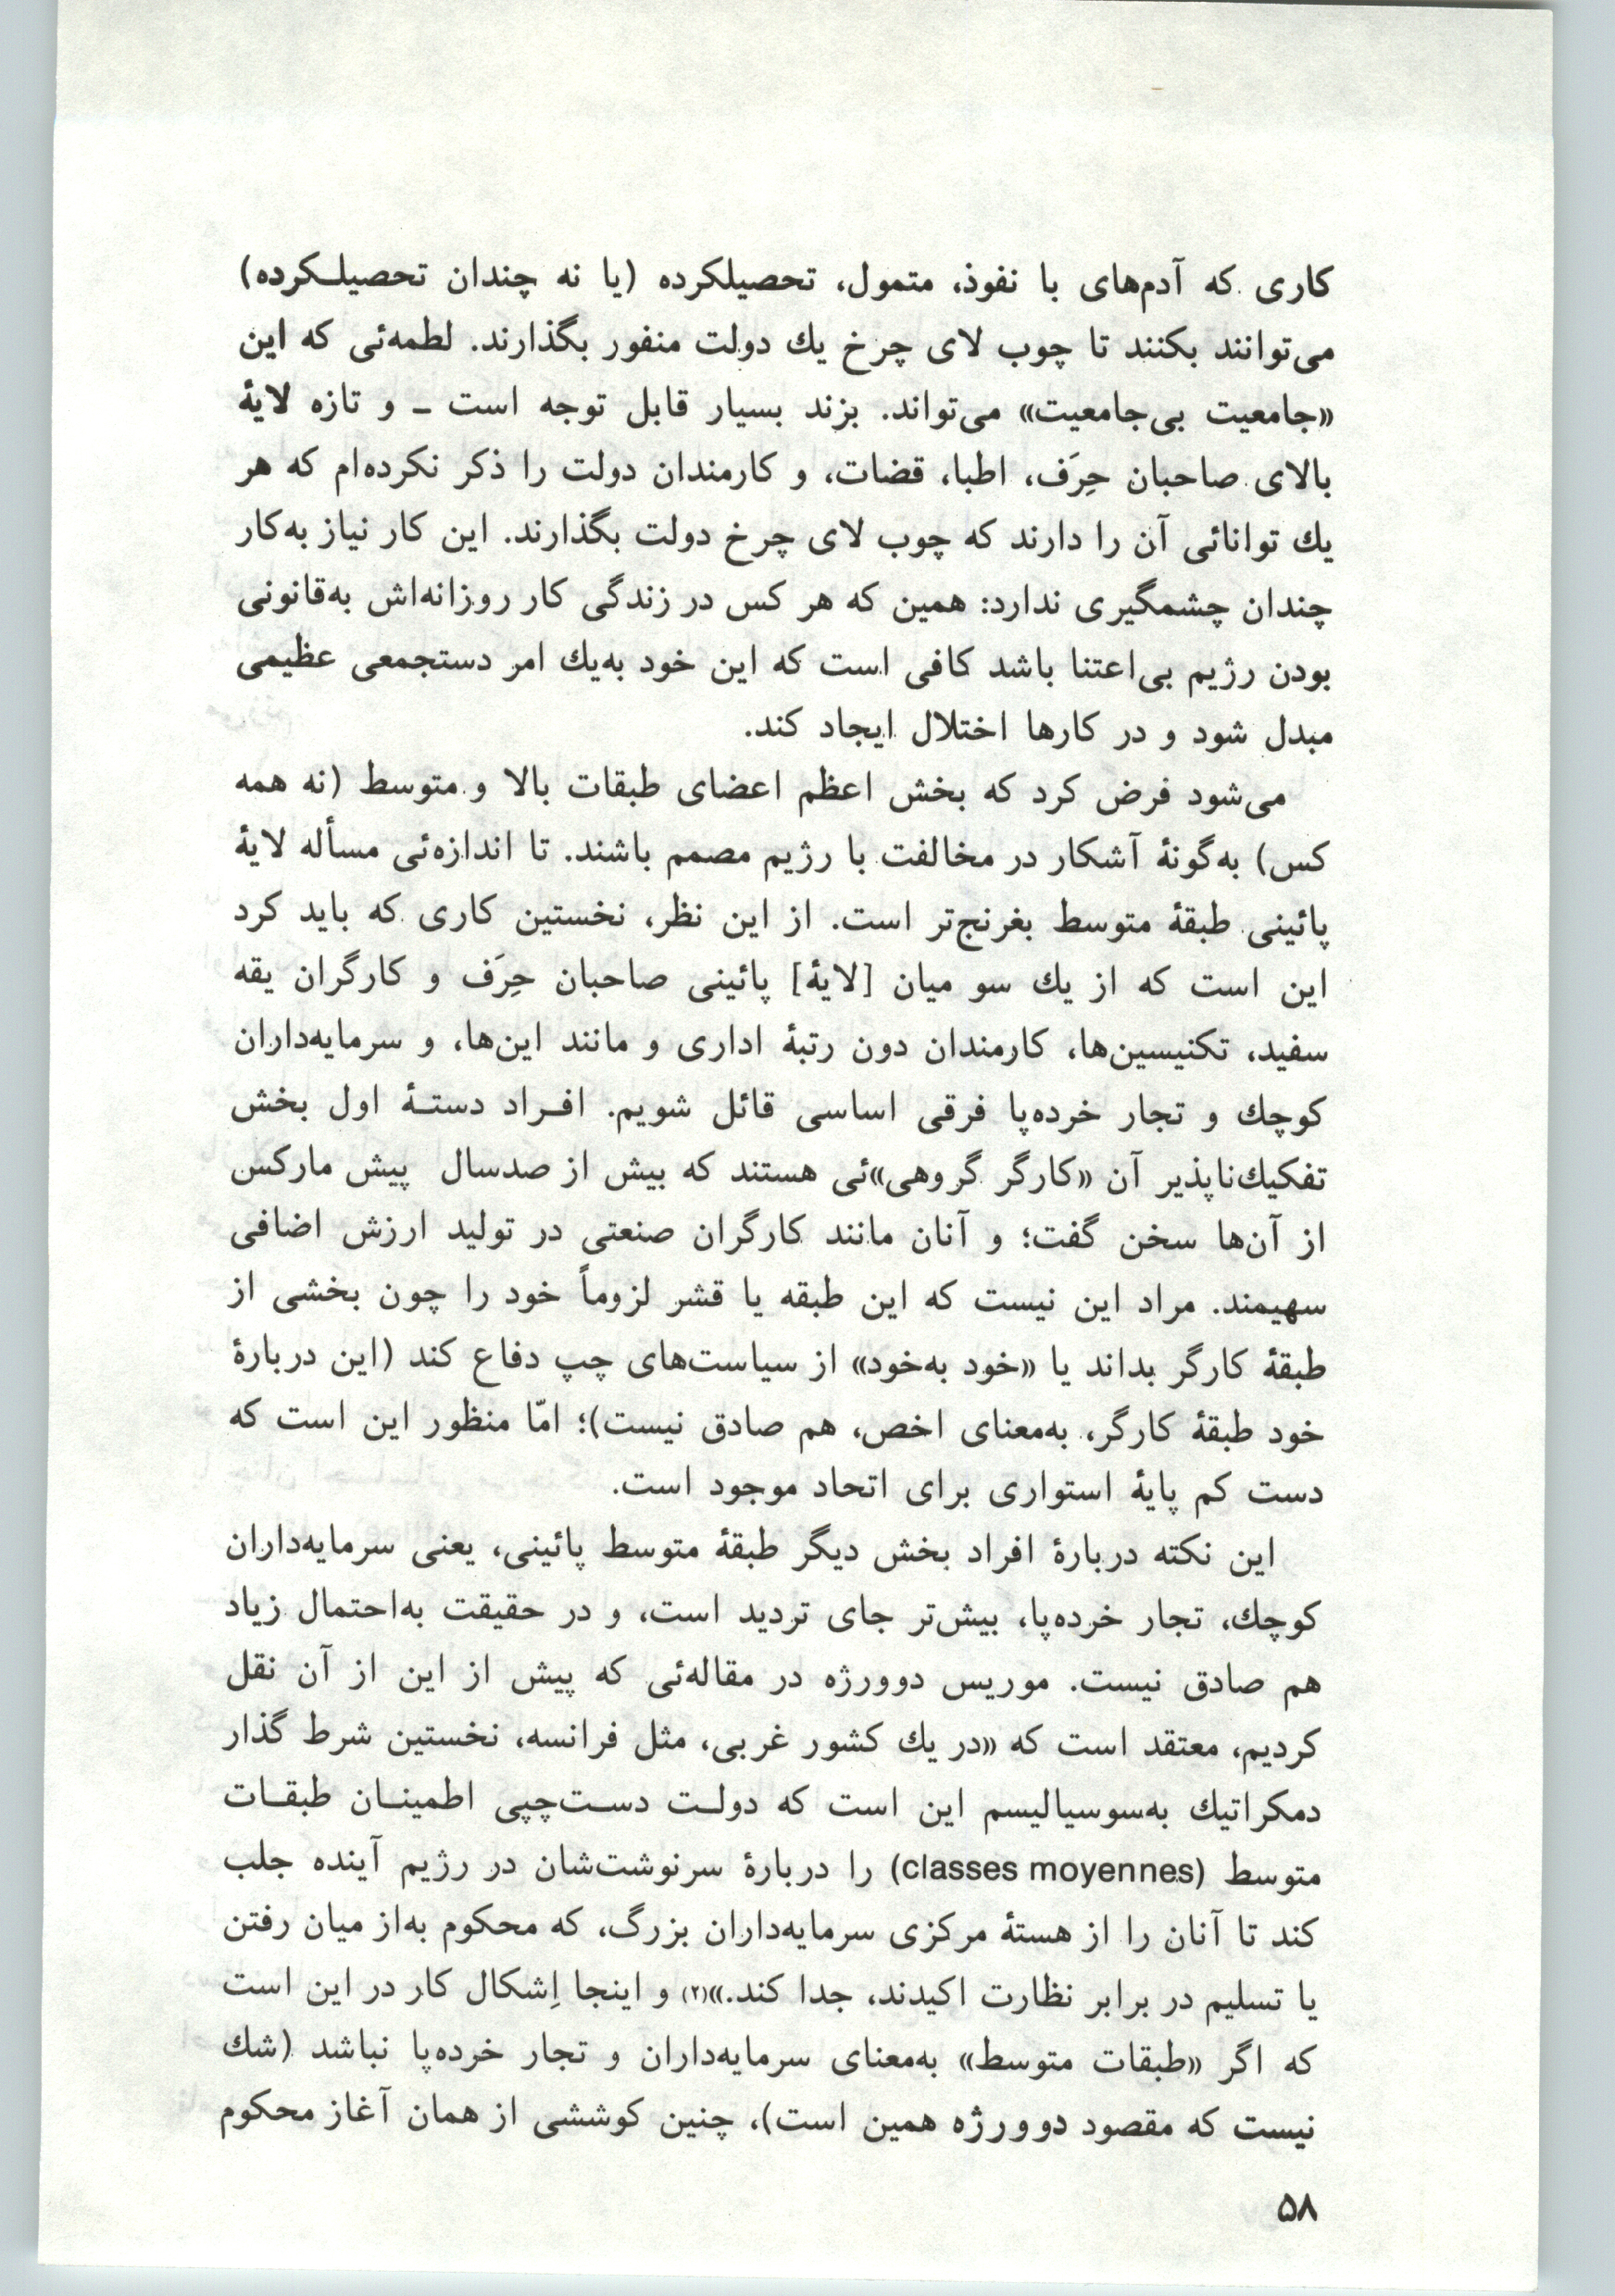 کاری که آدم‌های با نفوذ، متمول، تحصیلکرده (یا نه چندان تحصیلـکرده)
می‌توانند بکنند تا چوب لای چرخ یك دولت منفور بگذارند. لطمه‌ئی که این
«جامعیت بی‌جامعیت» می‌تواند. بزند بسیار قابل توجه است ـ و تازه لایهٔ
بالای صاحبان حِرَف، اطبا، قضات، و کارمندان دولت را ذکر نکرده‌ام که هر
یك توانائی آن را دارند که چوب لای چرخ دولت بگذارند. این کار نیاز به‌کار
چندان چشمگیری ندارد: همین که هر کس در زندگی کار روزانه‌اش به‌قانونی
بودن رژیم بی‌اعتنا باشد کافی است که این خود به‌یك امر دستجمعی عظیمی
مبدل شود و در کارها اختلال ایجاد کند.
می‌شود فرض کرد که بخش اعظم اعضای طبقات بالا و متوسط (نه همه
کس) به‌گونهٔ آشکار در مخالفت با رژیم مصمم باشند. تا اندازه‌ئی مسأله لایهٔ
پائینی طبقهٔ متوسط بغرنج‌تر است. از این نظر، نخستین کاری که باید کرد
این است که از یك سو میان [لایهٔ] پائینی صاحبان حِرَف و کارگران یقه
سفید، تکنیسین‌ها، کارمندان دون رتبهٔ اداری و مانند این‌ها، و سرمایه‌داران
کوچك و تجار خرده‌پا فرقی اساسی قائل شویم. افـراد دستـهٔ اول بخش
تفکیك‌ناپذیر آن «کارگر گروهی»ئی هستند که بیش از صدسال پیش مارکس
از آن‌ها سخن گفت؛ و آنان مانند کارگران صنعتی در تولید ارزش اضافی
سهیمند. مراد این نیست که این طبقه یا قشر لزوماً خود را چون بخشی از
طبقهٔ کارگر بداند یا «خود به‌خود» از سیاست‌های چپ دفاع کند (این دربارهٔ
خود طبقهٔ کارگر، به‌معنای اخص، هم صادق نیست)؛ امّا منظور این است که
دست کم پایهٔ استواری برای اتحاد موجود است.
این نکته دربارهٔ افراد بخش دیگر طبقهٔ متوسط پائینی، یعنی سرمایه‌داران
کوچك، تجار خرده‌پا، بیش‌تر جای تردید است، و در حقیقت به‌احتمال زیاد
هم صادق نیست. موریس دوورژه در مقاله‌ئی که پیش از این از آن نقل
کردیم، معتقد است که «در یك کشور غربی، مثل فرانسه، نخستین شرط گذار
دمکراتیك به‌سوسیالیسم این است که دولـت دسـت‌چپی اطمینـان طبقـات
متوسط (classes moyennes) را دربارهٔ سرنوشت‌شان در رژیم آینده جلب
کند تا آنان را از هستهٔ مرکزی سرمایه‌داران بزرگ، که محکوم به‌از میان رفتن
یا تسلیم در برابر نظارت اکیدند، جدا کند.»(۲) و اینجا اِشکال کار در این است
که اگر «طبقات متوسط» به‌معنای سرمایه‌داران و تجار خرده‌پا نباشد (شك
نیست که مقصود دوورژه همین است)، چنین کوششی از همان آغاز محکوم
۵۸